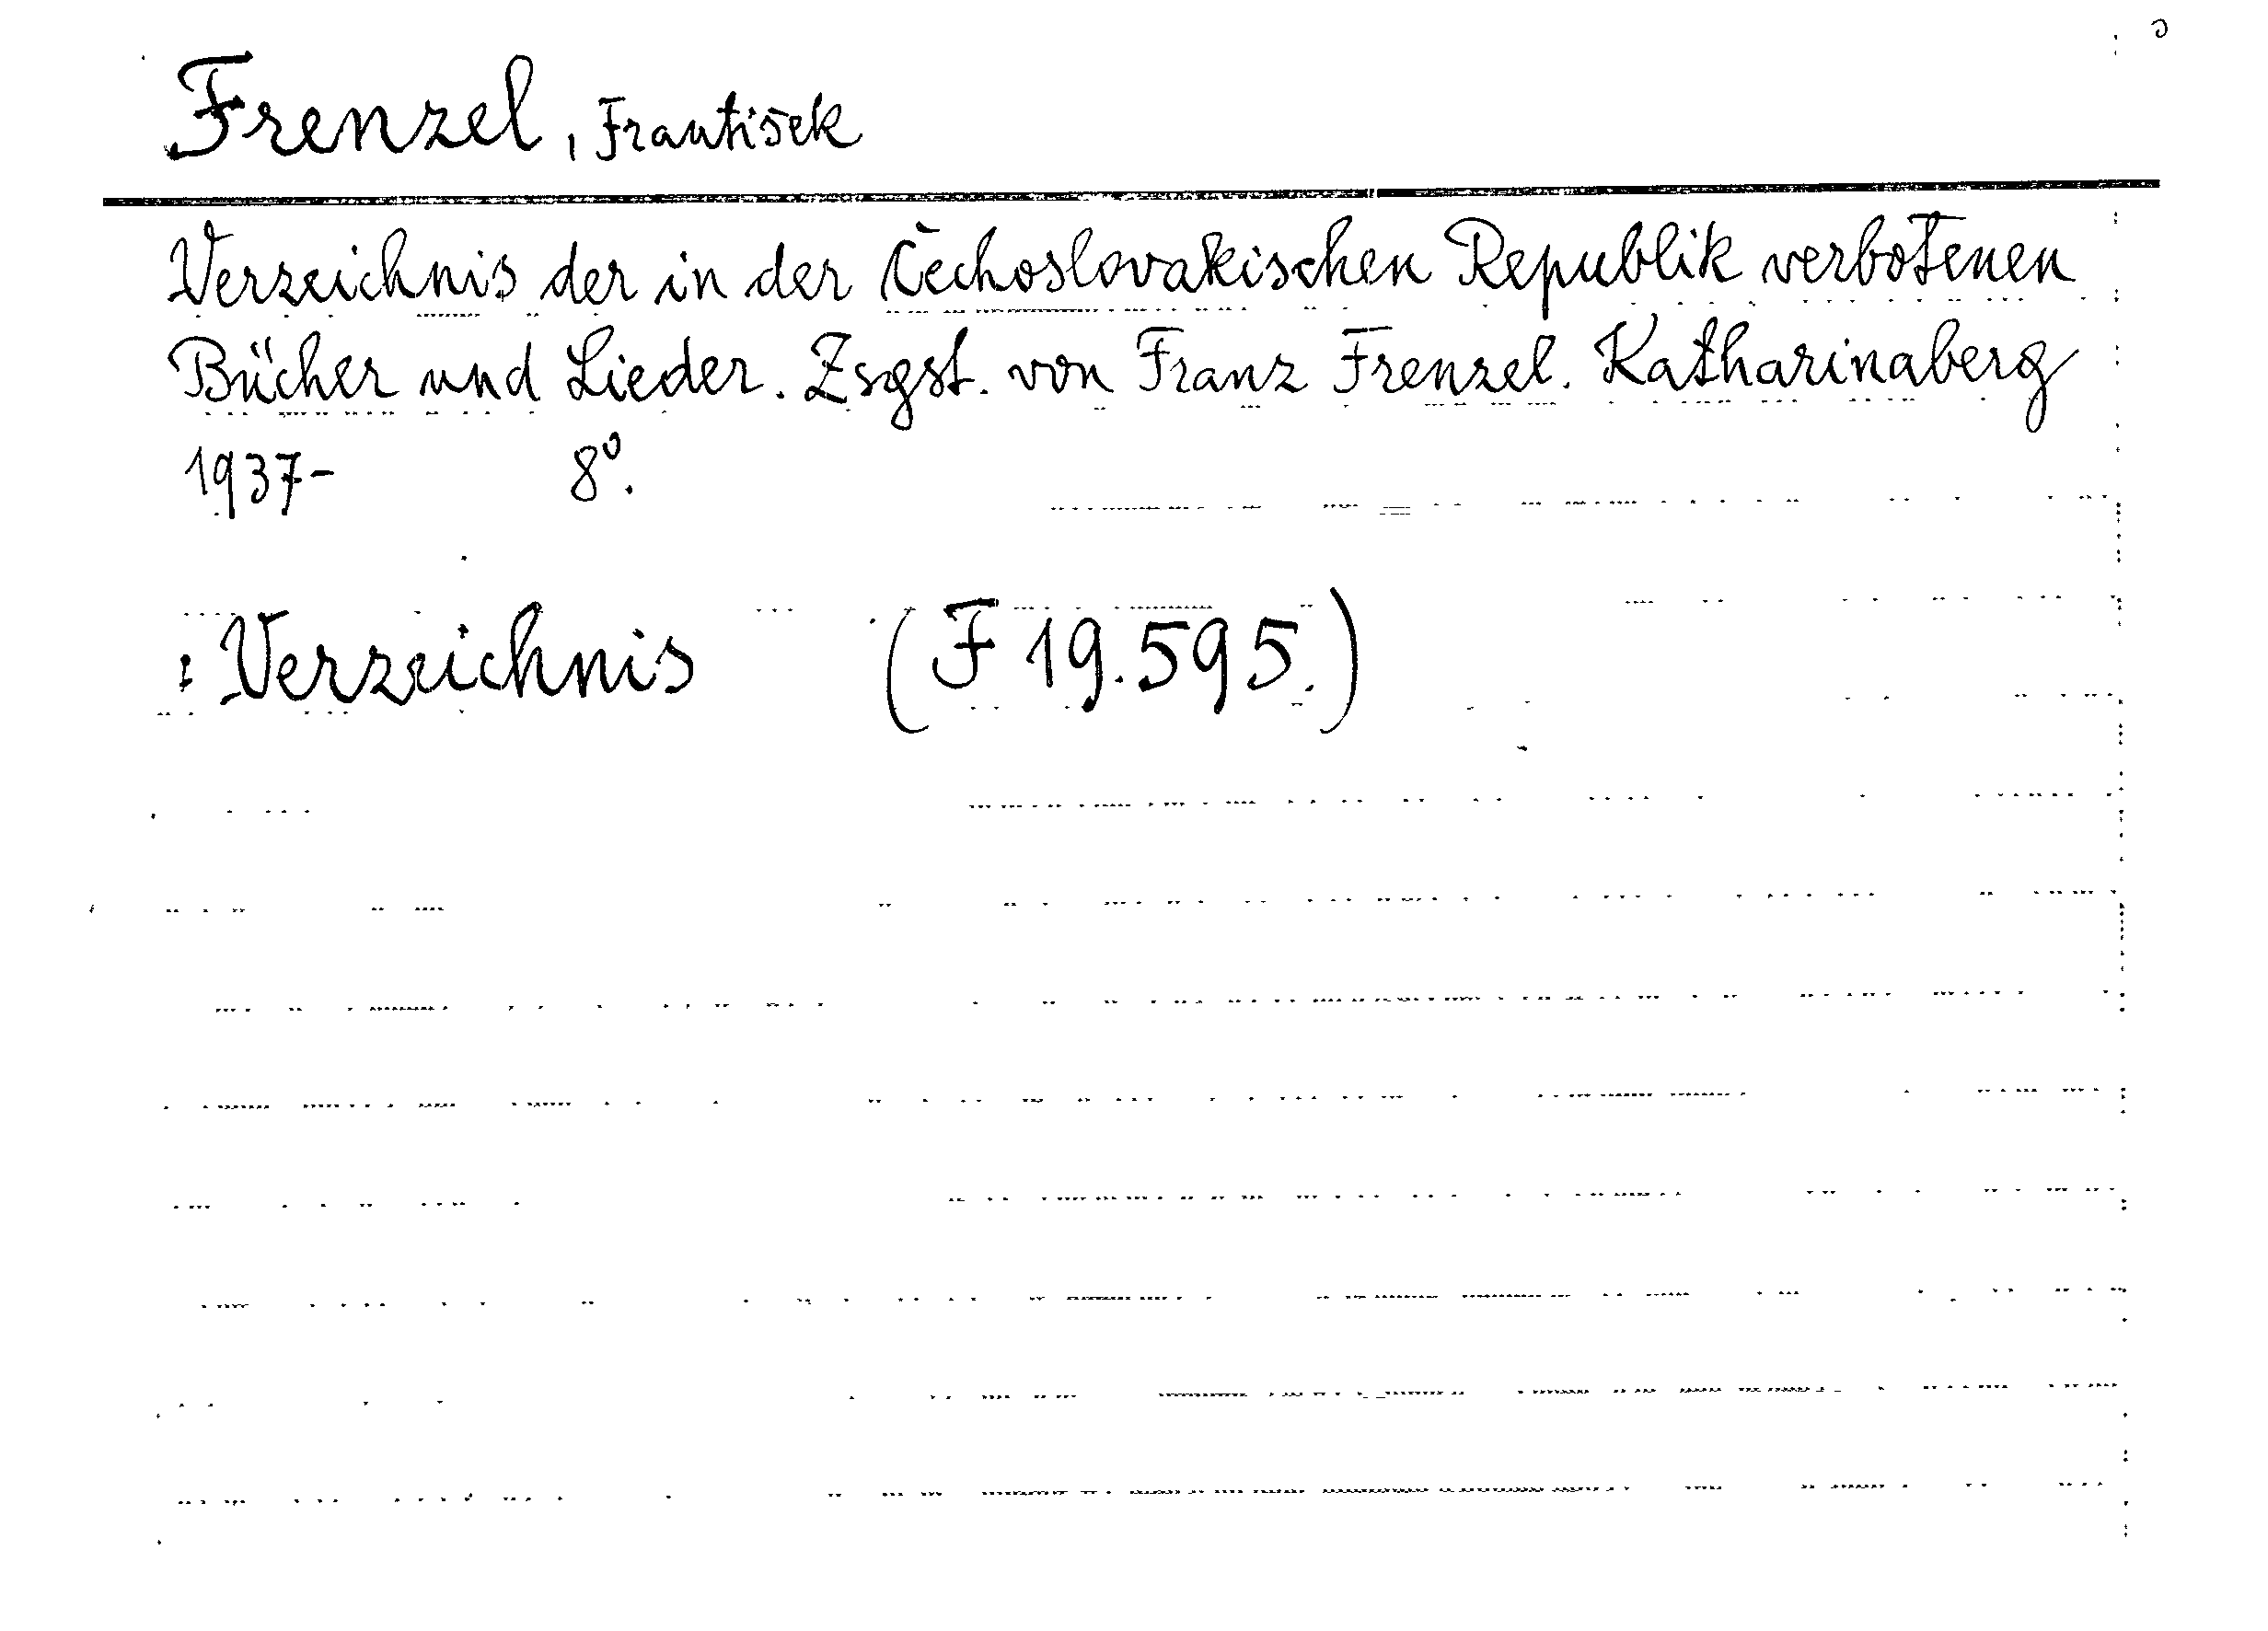 Frenzel, František
Verzeichnis der in der Čechoslovakischen Republik verbotenen
Bücher und Lieder. Zsgst. von Franz Frenzel. Katharinaberg
1937- 8º.
: Verzeichnis (F 19.595.)